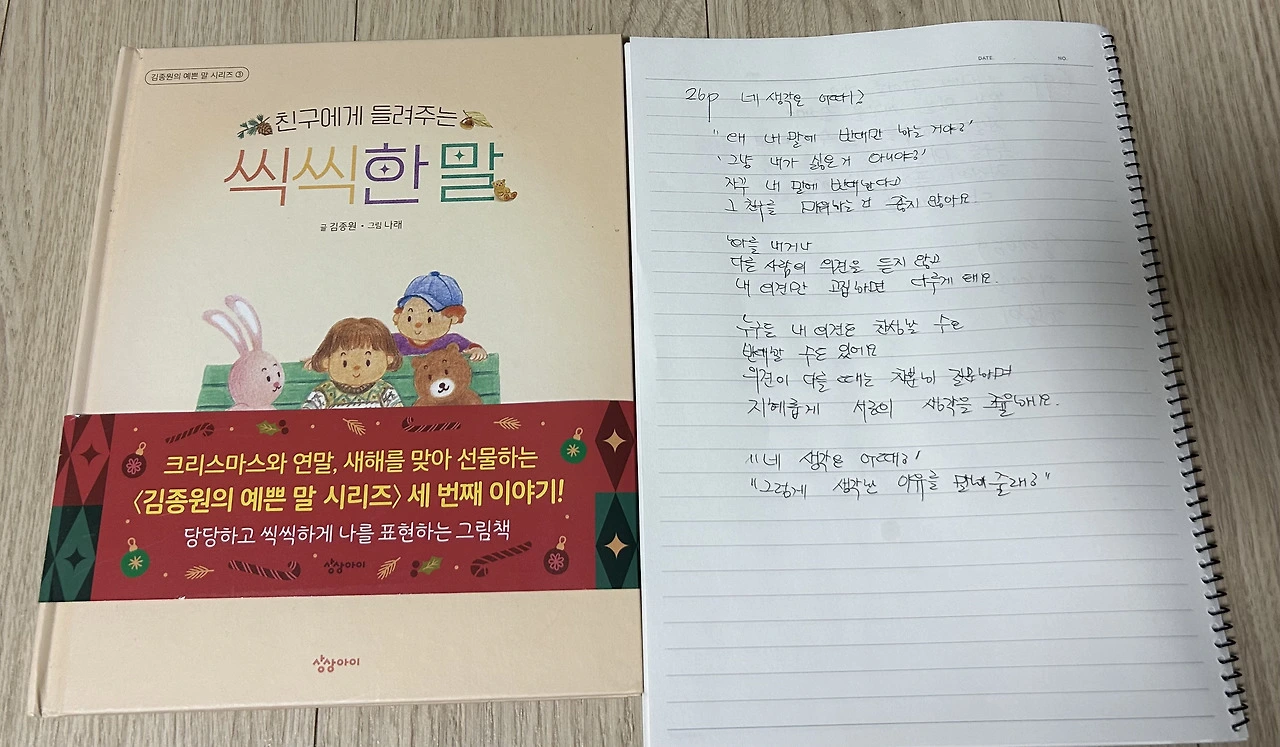 김종원의 예쁜 말 시리즈 ③
친구에게 들려주는
씩씩한 말
글 김종원 · 그림 나래
크리스마스와 연말, 새해를 맞아 선물하는
〈김종원의 예쁜 말 시리즈〉 세 번째 이야기!
당당하고 씩씩하게 나를 표현하는 그림책
상상아이
상상아이
DATE. NO.
26p 네 생각은 어때?
"왜 내 말에 반대만 하는 거야?"
"그냥 내가 싫은 거 아니야?"
자꾸 내 말에 반대한다고
그 친구를 미워하는 건 좋지 않아요.
화를 내거나
다른 사람의 의견을 듣지 않고
내 의견만 고집하면 다투게 돼요.
누구든 내 의견은 찬성할 수도
반대할 수도 있어요
의견이 다를 때는 차분히 질문하며
지혜롭게 서로의 생각을 조율해요.
"네 생각은 어때?"
"그렇게 생각한 이유를 말해 줄래?"